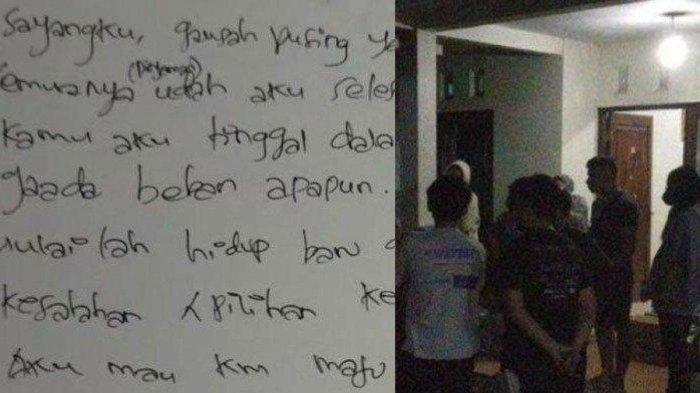 Sayangku, gausah pusing ya
(hutang)
semuanya udah aku seles
kamu aku tinggal dala
gaada beban apapun.
mulailah hidup baru
kesalahan pilihan ke
Aku mau km maju